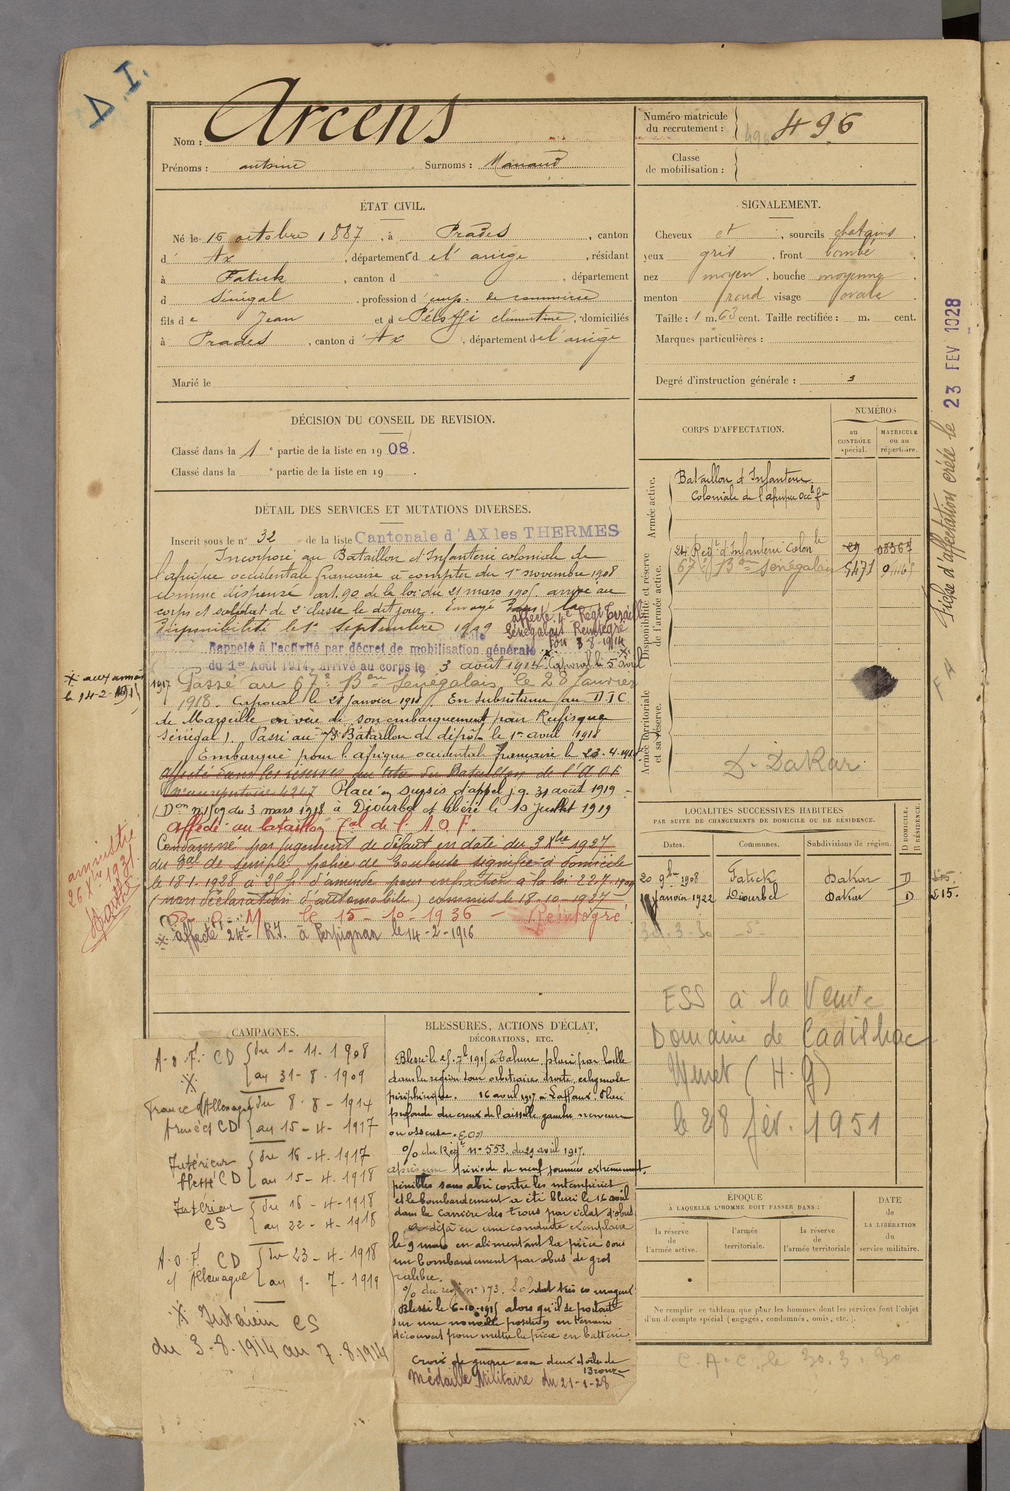 D. I.
Nom : Arcens
Prénoms : antoine Surnoms :
Numéro matricule
du recrutement : 496
Classe
de mobilisation :
ÉTAT CIVIL.
Né le 15 octobre 1887, à Prades, canton
d' Ax, département d e l'ariège, résidant
à Fatick, canton d " , département
d Sénégal, profession d' emp. de commerce
fils d e Jean et d e clémentine, domiciliés
à Prades, canton d' Ax, département de l'ariège
Marié le
SIGNALEMENT.
Cheveux et, sourcils chatains,
yeux gris, front bombé
nez moyen, bouche moyenne
menton rond visage ovale
Taille : 1 m. 63 cent. Taille rectifiée : m. cent.
Marques particulières :
Degré d'instruction générale : 3
DÉCISION DU CONSEIL DE REVISION.
Classé dans la 1e partie de la liste en 1908.
Classé dans la e partie de la liste en 19 .
CORPS D'AFFECTATION.
NUMÉROS
au
CONTRÔLE
spécial.
MATRICULE
ou au
répertoire.
Armée active.
Bataillon d'Infanterie
Coloniale de l'afrique Occle fse
Disponibilité et réserve
de l'armée active.
24 Regt d'Infanterie Colonle
67e Bon Sénégalais 5471
Armée territoriale
et sa réserve.
D. Dakar.
Fiche d'affectation créée le 23 FEV 1928
DÉTAIL DES SERVICES ET MUTATIONS DIVERSES.
Inscrit sous le n° 32 de la liste Cantonale d'AX les THERMES
Incorporé au Bataillon d'Infanterie coloniale de
l'afrique occidentale française à compter du 1er novembre 1908
comme dispensé art. 90 de la loi du 21 mars 1905. arrivé au
corps et soldat de 2e classe le dit jour. Envoyé dans la
disponibilité le 1er septembre 1909
affecté 4e Regt Tirailleurs
Sénégalais Réintégré
3-8-1914
Rappelé à l'activité par décret de mobilisation générale
du 1er Août 1914, arrivé au corps le 3 août 1914. Caporal le 5 avril
1917 Passé au 67e Bon Sénégalais le 28 Janvier
1918. Caporal le 28 Janvier 1918. En subsistance au D.I.C
de Marseille en vue de son embarquement pour Rufisque
Sénégal). Passé au 73 Bataillon de dépôt le 1er avril 1918
Embarqué pour l'afrique occidentale française le 23-4-1918
Placé en sursis d'appel j.q. 31 août 1919
(Don n° 1109 du 3 mars 1918 à Diourbel et libéré le 10 juillet 1919
Affecté au bataillon Tal de l'A.O.F.
Condamné par jugement de défaut en date du 9 Xbre 1927
du Bal de simple police de Toulouse signifié à domicile
le 18-1-1928 à 25 f. d'amende pour infraction à la loi 22.7.1909
(non déclaration d'automobile) commise le 18-10-1927
le 15-10-1936 - Réintégré
※ affecté 24e R.I. à Perpignan le 14-2-1916
※ aux armées
le 14-2-1915
amnistie
26 Xbre 1931.
LOCALITÉS SUCCESSIVES HABITÉES
PAR SUITE DE CHANGEMENTS DE DOMICILE OU DE RÉSIDENCE.
Dates. Communes. Subdivisions de région. D DOMICILE. R RÉSIDENCE.
20 9bre 1908 Fatick Dakar D
janvier 1922 Diourbel Dakar D £15.
30.3.30
ESS à la Veuve
Domaine de Cadilhac
Muret (H.G)
le 28 fév. 1951
CAMPAGNES.
A.O.F. CD { du 1-11-1908
au 31-8-1909
※
France d'Allemagne { du 8-8-1914
Armées CD au 15-4-1917
Intérieur { du 16-4-1917
Blessé CD au 15-4-1918
Intérieur { du 16-4-1918
CS au 22-4-1918
A.O.F. CD { du 23-4-1918
d'Allemagne au 9-7-1919
※ Intérieur CS
du 3-8-1914 au 7-8-1914
BLESSURES, ACTIONS D'ÉCLAT,
DÉCORATIONS, ETC.
Blessé le 25 7bre 1915 à Tahure, plaie par balle
dans la région sous orbitaire droite, ecchymose
périphérique. 16 avril 1917 à Laffaux. Plaie
profonde du creux de l'aisselle gauche nerveuse
ou osseuse.
O/o du Régt n° 553. du 29 avril 1917.
après une période de neuf journées extrêmement
pénibles sans abri contre les intempéries
et le bombardement a été blessé le 16 avril
dans la Carrière des trous par éclat d'obus
a déjà eu une conduite exemplaire
le 9 mars en alimentant la pièce sous
un bombardement par obus de gros
calibre.
O/o du régt n° 173. Soldat très courageux
Blessé le 6-10-1915 alors qu'il se portait
sur une nouvelle position en terrain
découvert pour mettre la pièce en batterie.
Croix de guerre avec deux étoiles de
bronze
Médaille Militaire du 21-1-28
ÉPOQUE
À LAQUELLE L'HOMME DOIT PASSER DANS :
la réserve
de
l'armée active.
l'armée
territoriale.
la réserve
de
l'armée territoriale
DATE
de
LA LIBÉRATION
du
service militaire.
Ne remplir ce tableau que pour les hommes dont les services font l'objet
d'un décompte spécial (engagés, condamnés, omis, etc.).
C.A.C. le 30.3.30